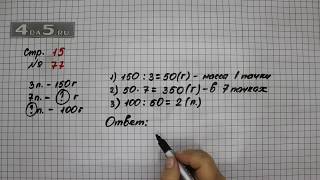 4DA5.RU
Стр. 15
№ 77
3п. - 150г
7п. - ? г
?п. - 100г
1) 150 : 3 = 50(г) - масса 1 пачки
2) 50 · 7 = 350(г) - в 7 пачках
3) 100 : 50 = 2 (п.)
Ответ: